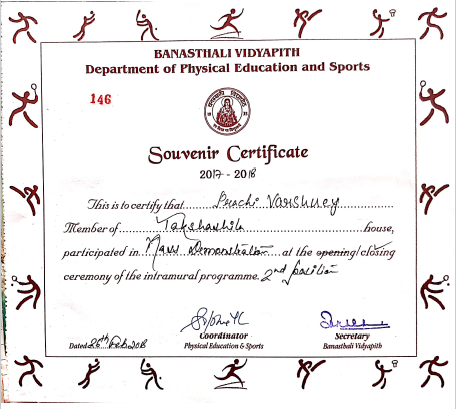 BANASTHALI VIDYAPITH
Department of Physical Education and Sports
146
Souvenir Certificate
2017 - 2018
This is to certify that Prachi Varshney
Member of Takshashila house,
participated in Mass Demonstration at the opening/closing
ceremony of the intramural programme. 2nd position
Coordinator Secretary
Physical Education & Sports Banasthali Vidyapith
Dated 26th Feb 2018